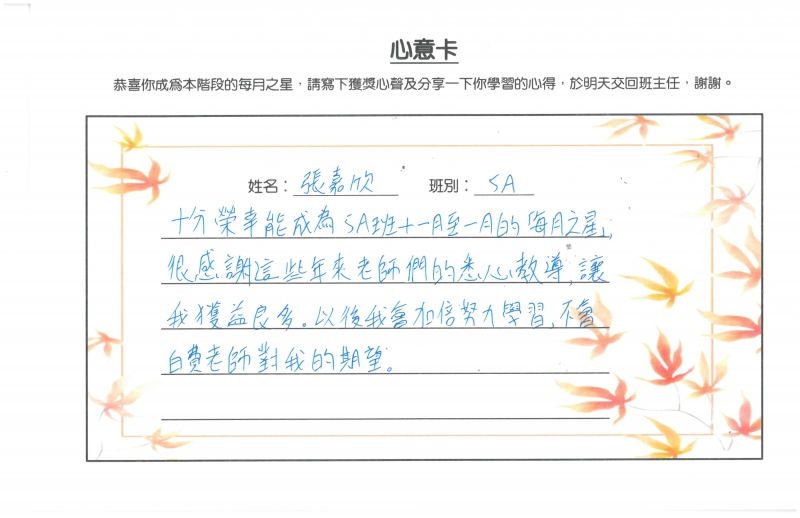 心意卡
恭喜你成為本階段的每月之星，請寫下獲獎心聲及分享一下你學習的心得，於明天交回班主任，謝謝。
姓名：張嘉欣 班別：5A
十分榮幸能成為5A班十一月至一月的「每月之星」,
很感謝這些年來老師們的悉心教導,讓
我獲益良多。以後我會加倍努力學習,不會
白費老師對我的期望。